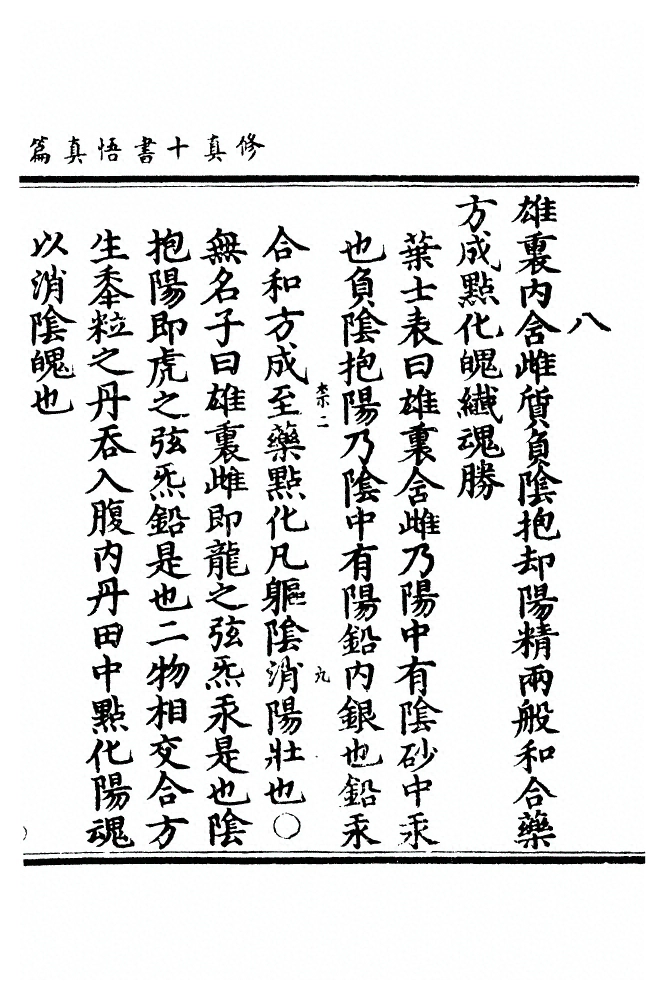 修真十書悟真篇
八
雄裏內含雌質負陰抱却陽精兩般和合藥
方成點化魄纖魂勝
葉士表曰雄裏含雌乃陽中有陰砂中汞
也負陰抱陽乃陰中有陽鉛內銀也鉛汞
柰二
九
合和方成至藥點化凡軀陰消陽壯也○
無名子曰雄裏雌即龍之弦炁汞是也陰
抱陽即虎之弦炁鉛是也二物相交合方
生黍粒之丹吞入腹內丹田中點化陽魂
以消陰魄也